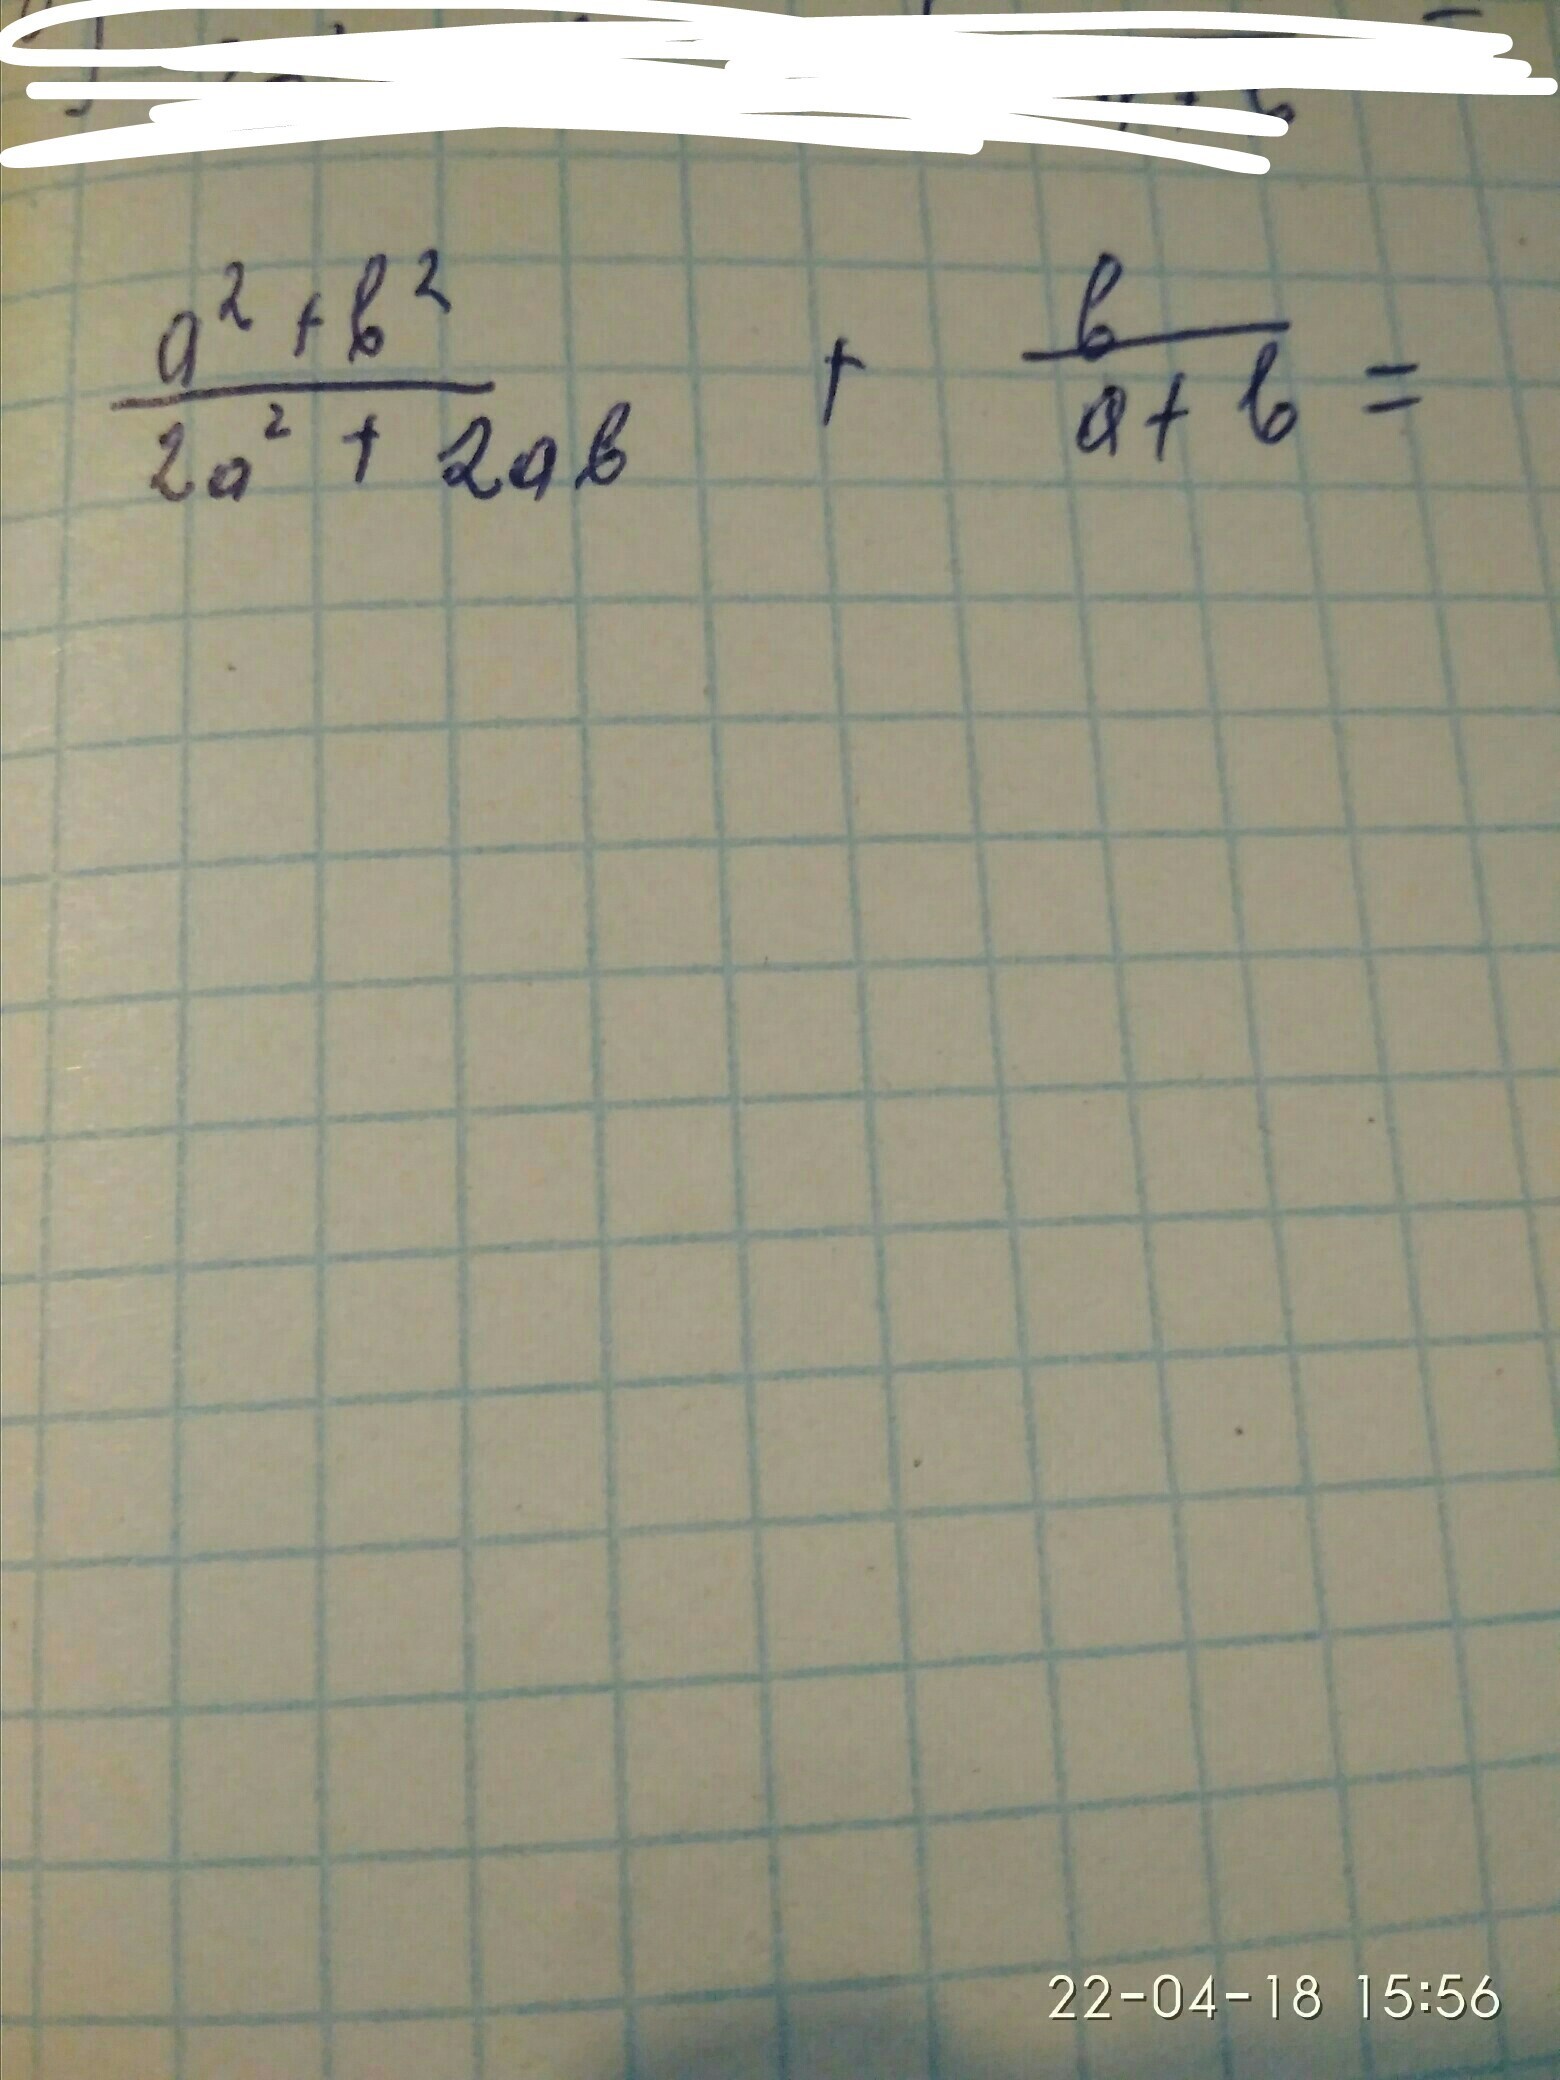 a² + b² + b
2a² + 2ab a + b =
22-04-18 15:56